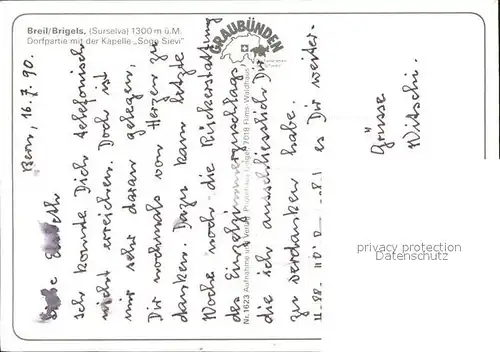 Breil/Brigels, (Surselva) 1300 m ü.M.
Dorfpartie mit der Kapelle „Sogn Sievi"
GRAUBÜNDEN
Nr. 1623 Aufnahme und Verlag: 7018 Flims-Waldhaus
Bern, 16.7.90.
Liebe Elsbeth
Ich konnte Dich telefonisch
nicht erreichen. Doch ist
mir sehr daran gelegen,
Dir nochmals von Herzen zu
danken. Dazu kam letzte
Woche noch die Rückerstattung
des Einzelzimmerzuschlags,
die ich ausschliesslich Dir
zu verdanken habe.
es Dir weiter-
Grüsse
privacy protection
Datenschutz